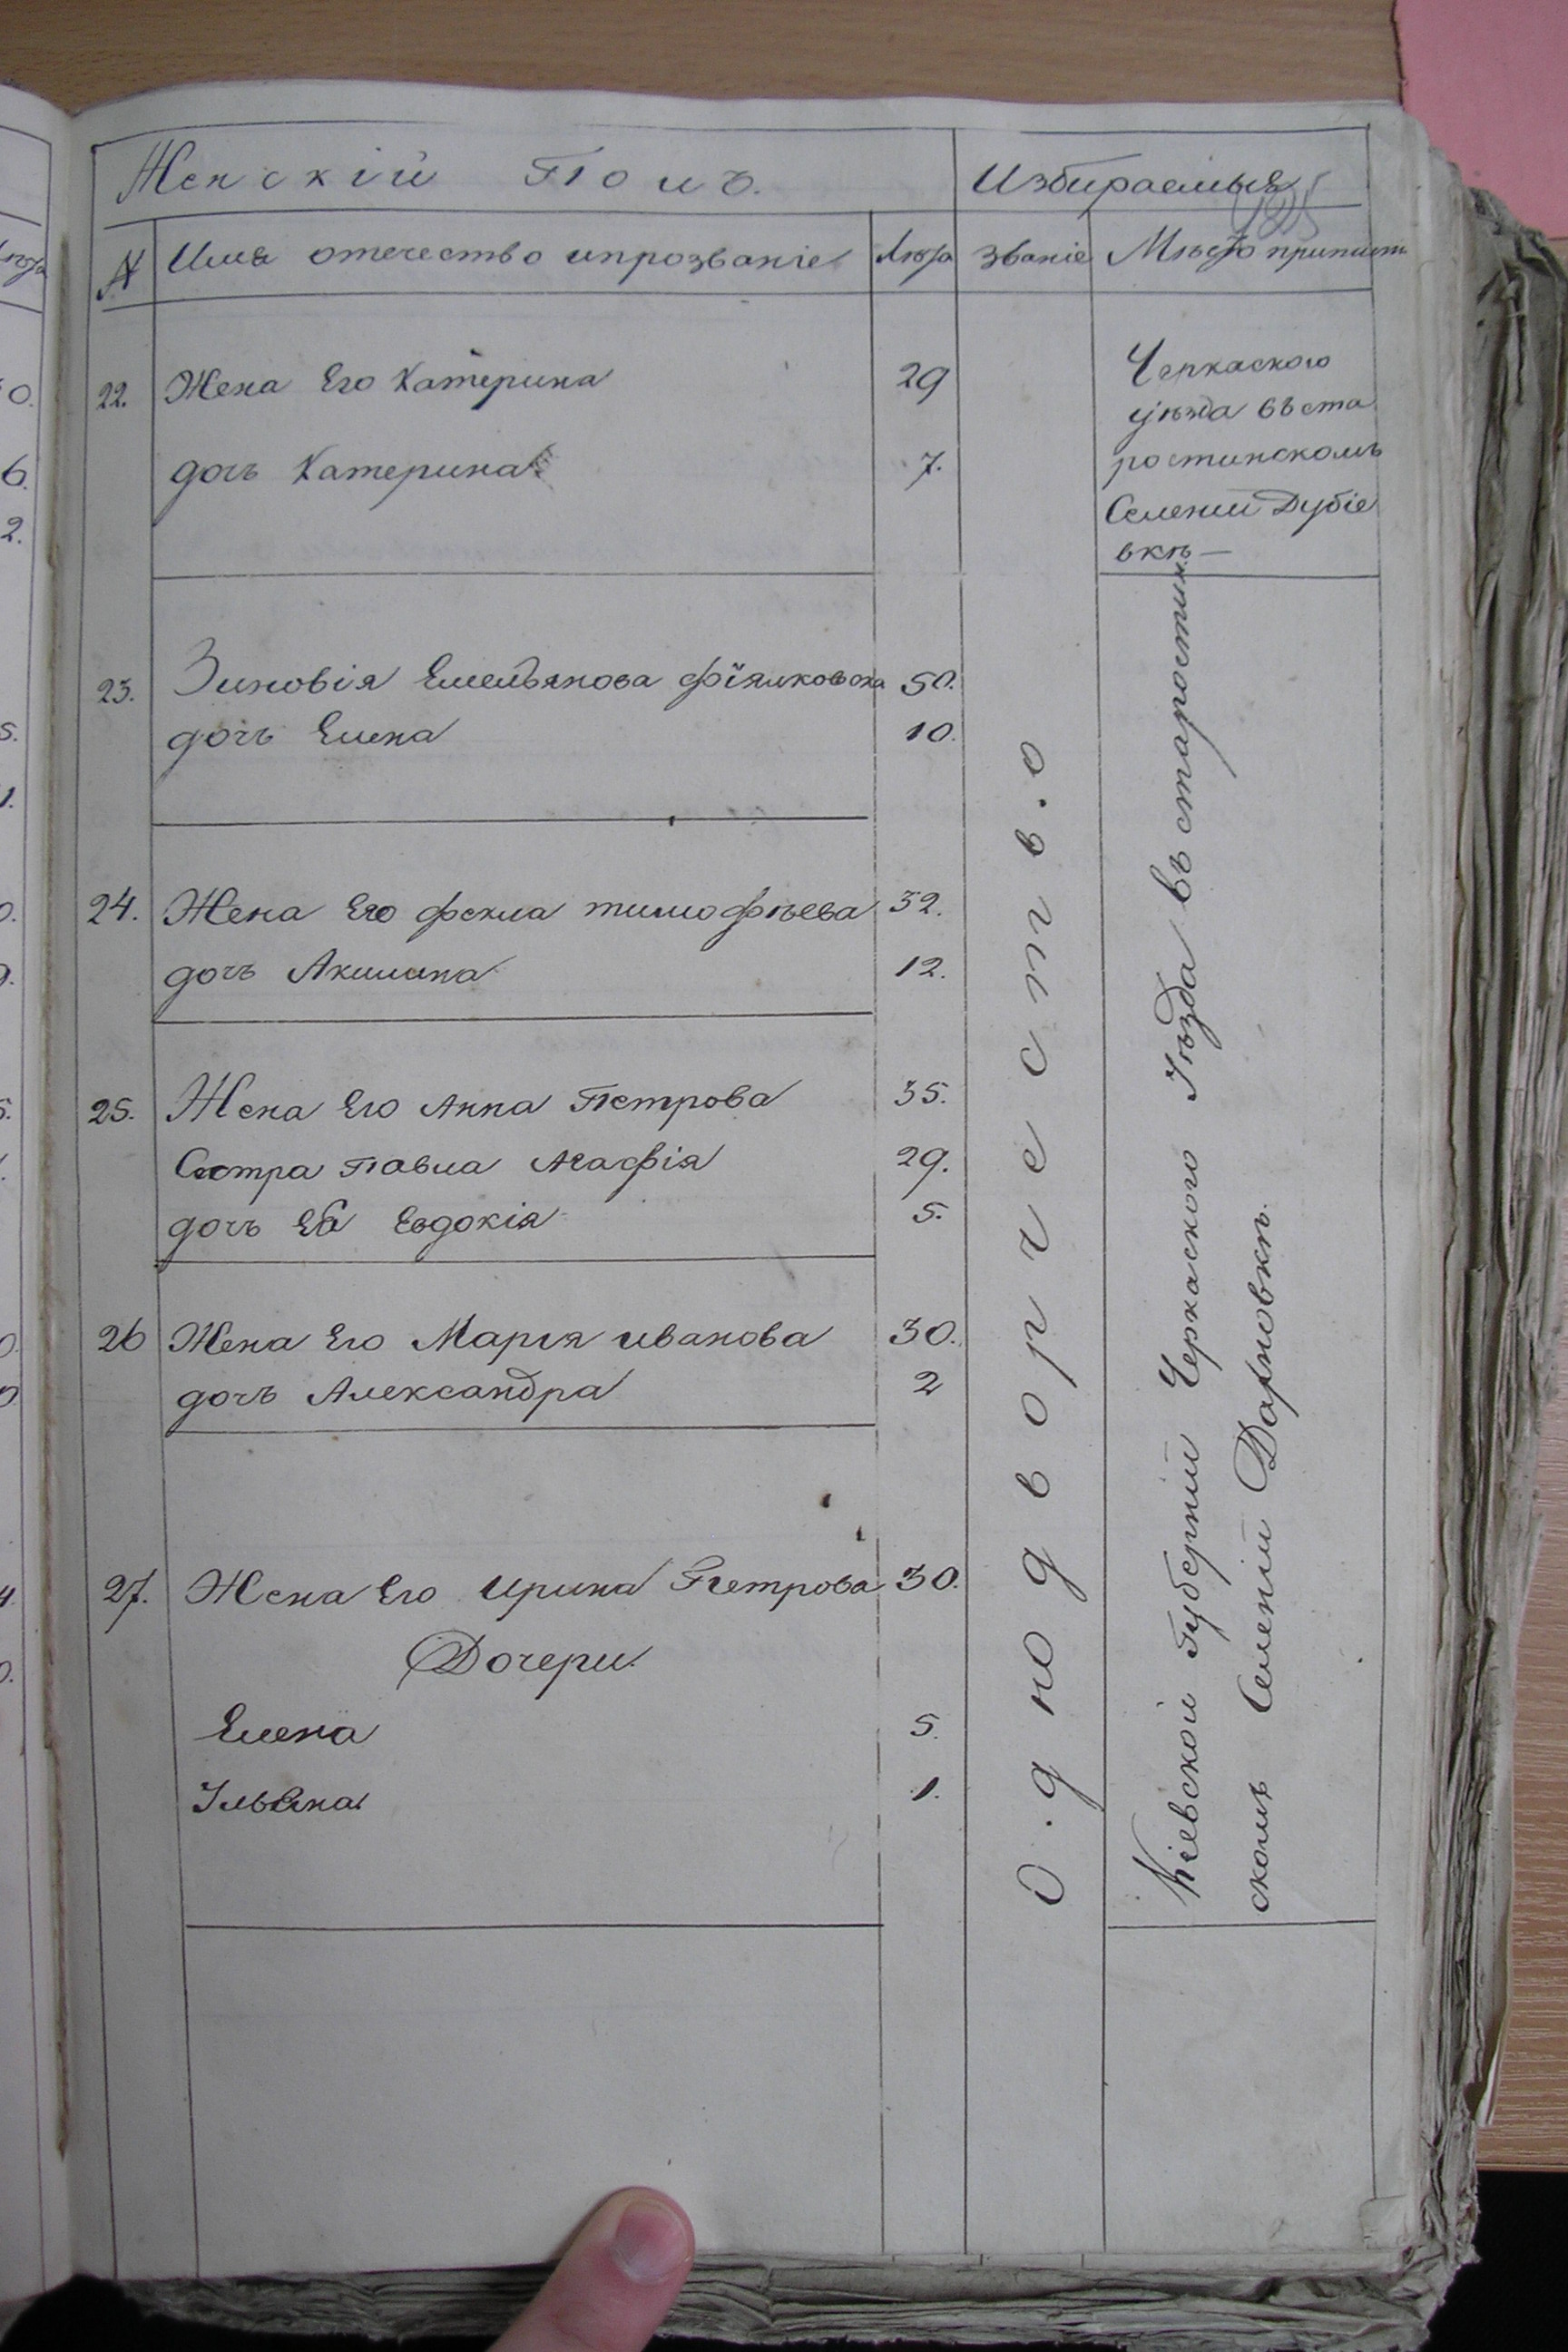 Женскій Полъ.
Избираемыя
485
№
Имя отечество ипрозваніе
Лѣта
Званіе
Мѣсто приписки
22.
Жена Его Катерина
29
дочь Катерина
7.
Черкаского
уѣзда въ ста
ростинскомъ
Селеніи Дубіе
вкѣ —
23.
Зиновія Емельянова Фіялковска
50.
дочь Елена
10.
24.
Жена Его Фекла тимофѣева
32.
дочь Акилина
12.
25.
Жена Его Анна Петрова
35.
Сестра Павла Агафія
29.
дочь Её Евдокія
5.
26
Жена Его Марія иванова
30.
дочь Александра
2
27.
Жена Его Ирина Петрова
30.
Дочери.
Елена
5.
Ульяна
1.
Однодворчество
Кіевской Губерніи Черкаского Уѣзда въ старостин
скомъ Селеніи Дахновкѣ.